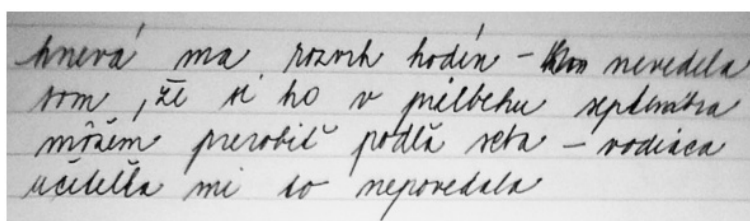 hnevá ma rozvrh hodín - nevedela
som, že si ho v priebehu septembra
môžem prerobiť podľa seba - vodiaca
učiteľka mi to nepovedala